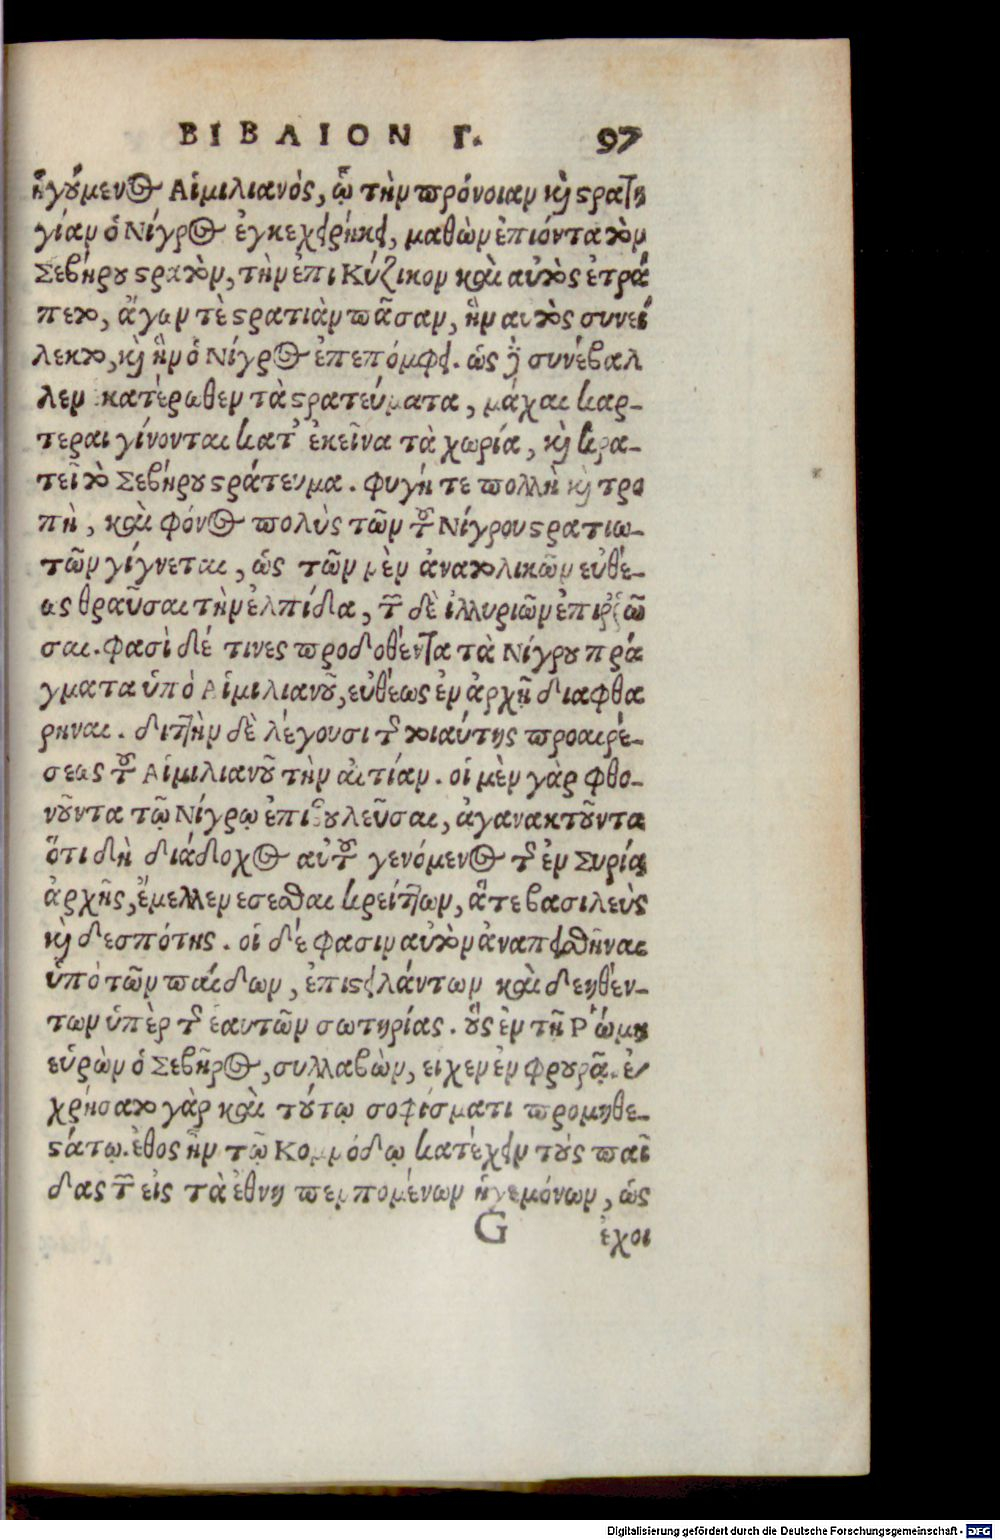 ΒΙΒΛΙΟΝ Γ. 97
ἡγούμενος Αἰμιλιανός, ᾧ τὴν πρόνοιαν καὶ στρατη
γίαν ὁ Νίγρος ἐγκεχειρήκει, μαθὼν ἐπιόντα τὸν
Σεβήρου στρατὸν, τὴν ἐπι Κύζικον καὶ αὐτὸς ἐτρά
πετο, ἄγων τὲ στρατιὰν πᾶσαν, ἣν αυτὸς συνεί
λεκτο, καὶ ἣν ὁ Νίγρος ἐπεπόμφει. ὡς δὲ συνέβαλ
λεν ἑκατέρωθεν τὰ στρατεύματα, μάχαι καρ-
τεραι γίνονται κατ' ἐκεῖνα τὰ χωρία, καὶ κρα-
τεῖ τὸ Σεβήρου στράτευμα. φυγή τε πολλὴ καὶ τρο
πὴ, καὶ φόνος πολὺς τῶν τοῦ Νίγρου στρατιω-
τῶν γίγνεται, ὡς τῶν μὲν ἀνατολικῶν εὐθέ-
ως θραῦσαι τὴν ἐλπίδα, τῶν δὲ ἰλλυριῶν ἐπιρρῶ
σαι. φασὶ δέ τινες προδοθέντα τὰ Νίγρου πρά
γματα ὑπὸ Αἰμιλιανοῦ, εὐθέως ἐν ἀρχῇ διαφθα
ρηναι. διττὴν δὲ λέγουσι τῆς τοιαύτης προαιρέ-
σεως τοῦ Αἰμιλιανοῦ τὴν αἰτίαν. οἱ μὲν γὰρ φθο-
νοῦντα τῷ Νίγρῳ ἐπιβουλεῦσαι, ἀγανακτοῦντα
ὅτι δὴ διάδοχος αὐτοῦ γενόμενος τῆς ἐν Συρίᾳ
ἀρχῆς, ἔμελλεν εσεσθαι κρείττων, ἅτε βασιλεὺς
καὶ δεσπότης. οἱ δέ φασιν αὐτὸν ἀναπεισθῆναι
ὑπὸ τῶν παίδων, ἐπιστειλάντων καὶ δεηθέν-
των ὑπὲρ τῆς ἑαυτῶν σωτηρίας. οὓς ἐν τῇ Ῥώμῃ
εὑρὼν ὁ Σεβῆρος, συλλαβὼν, εἶχεν ἐν φρουρᾷ. ἐ
χρήσατο γὰρ καὶ τούτῳ σοφίσματι προμηθε-
στάτῳ. ἔθος ἦν τῷ Κομμόδῳ κατέχειν τοὺς παῖ
δας τῶν εἰς τὰ ἔθνη πεμπομένων ἡγεμόνων, ὡς
G ἔχοι
Digitalisierung gefördert durch die Deutsche Forschungsgemeinschaft - DFG